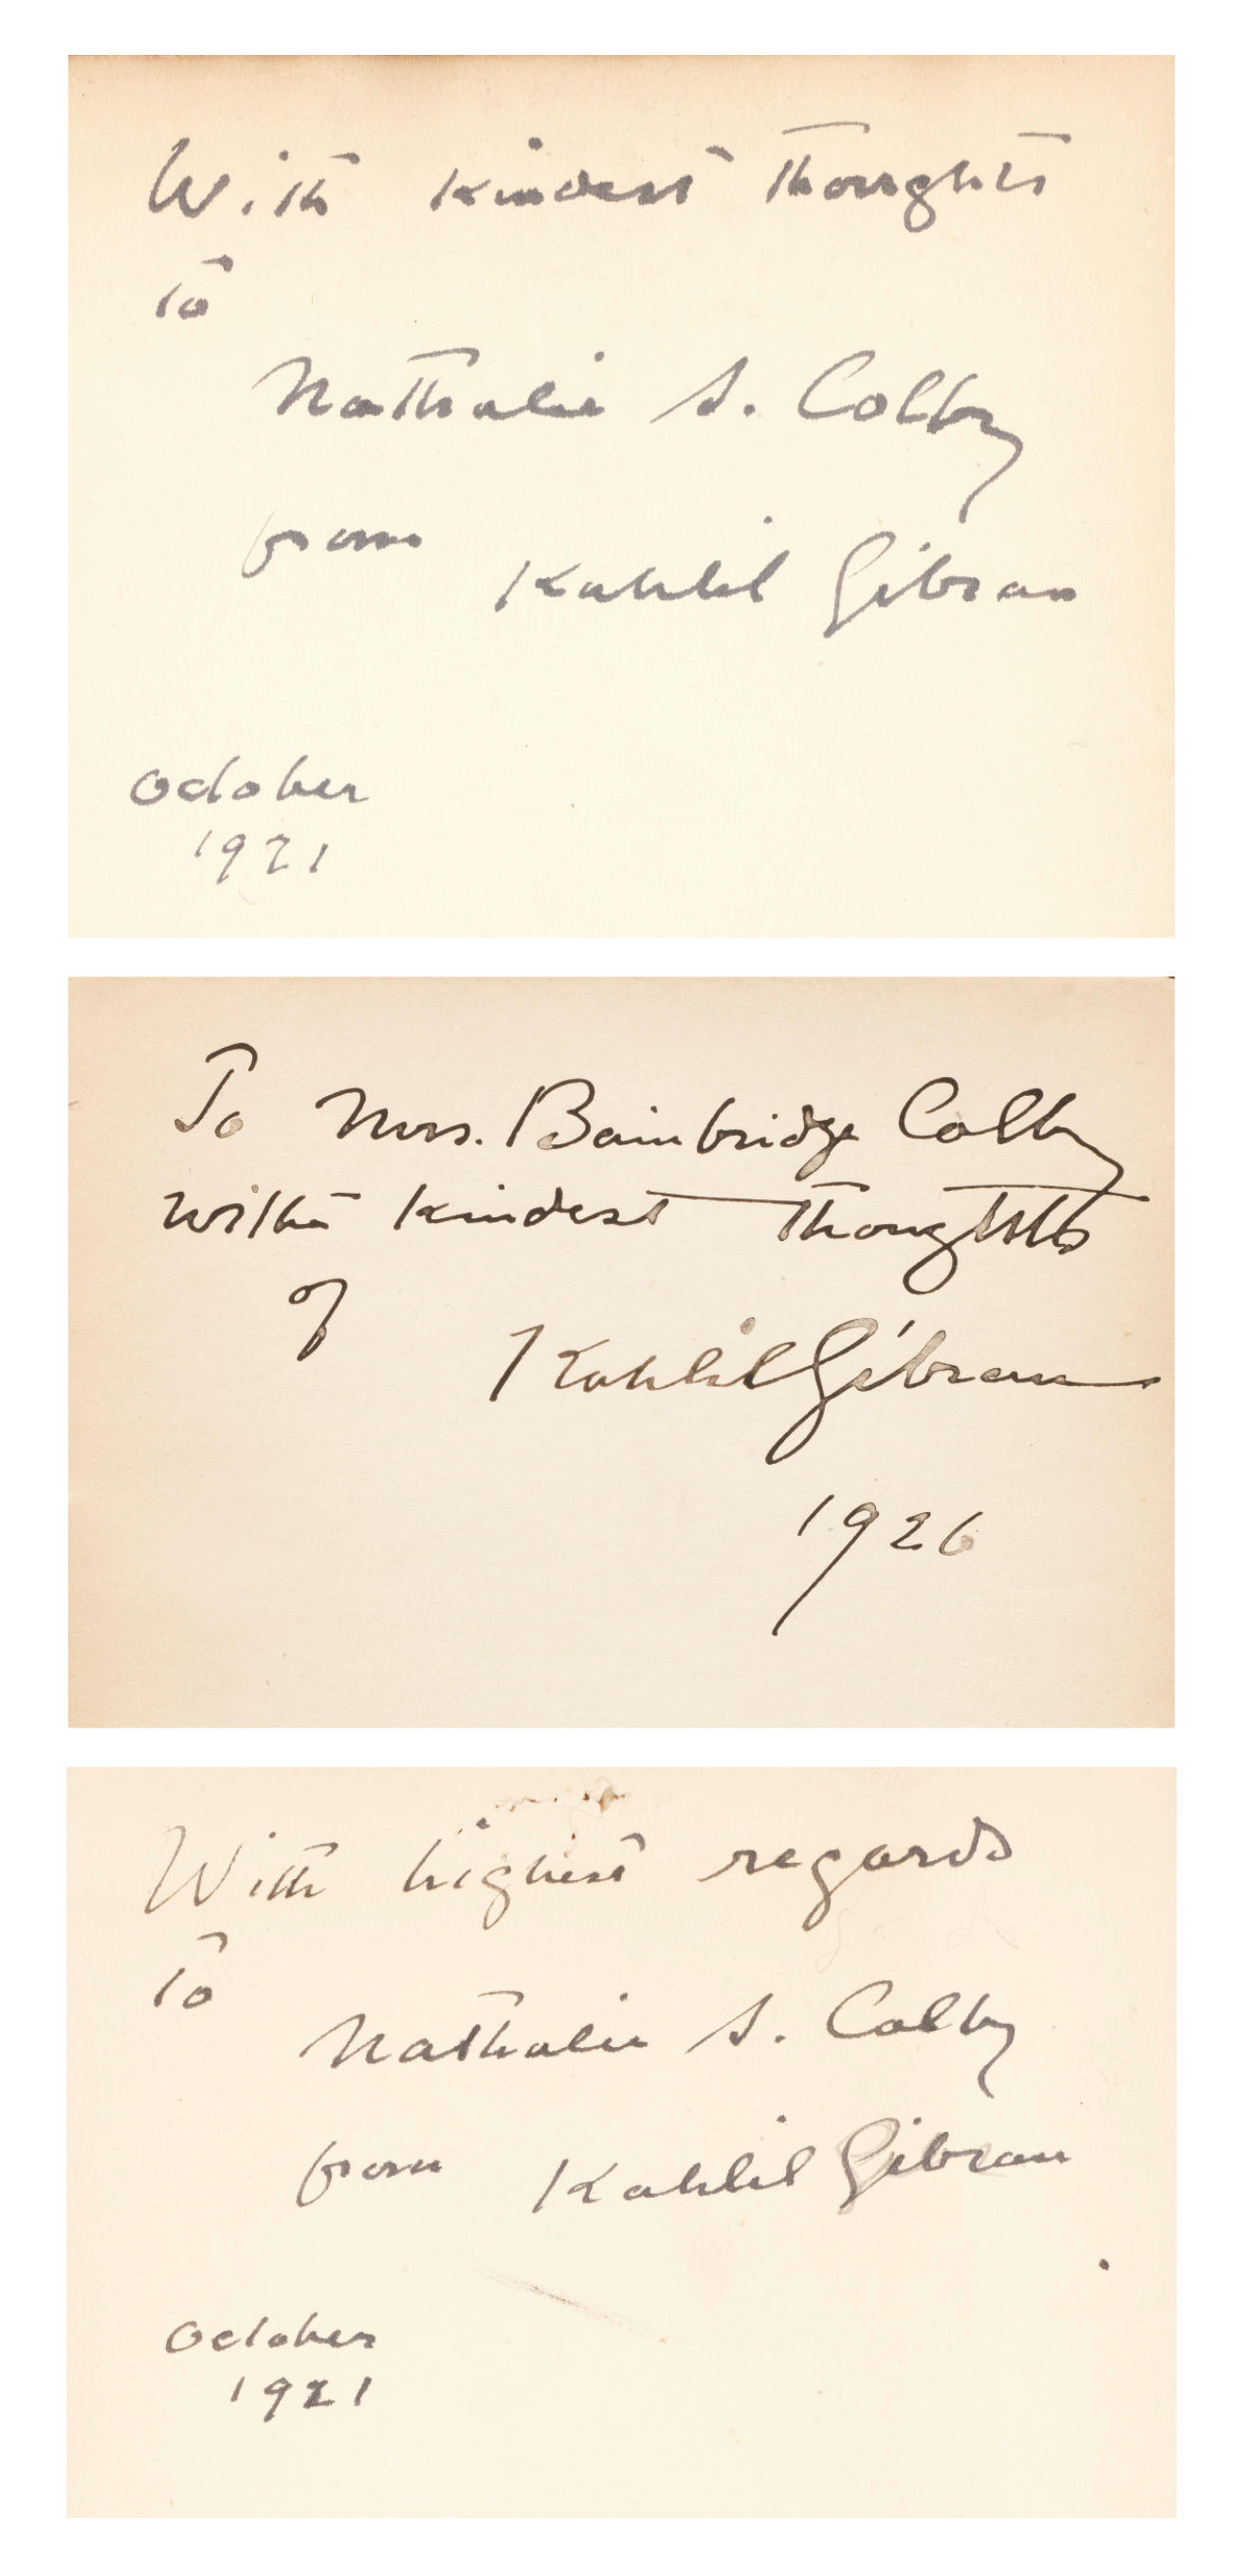 With kindest thoughts
To
Nathalie S. Colby
from
Kahlil Gibran
October
1921
To Mrs. Bainbridge Colby
with kindest thoughts
of
Kahlil Gibran
1926
With highest regards
To
Nathalie S. Colby
from Kahlil Gibran
October
1921